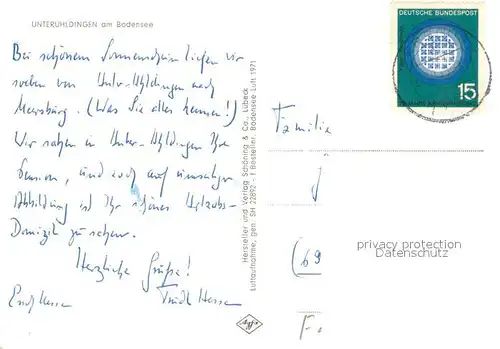 UNTERUHLDINGEN am Bodensee
Bei schönem Sonnenschein liefen wir
soeben von Unter-Uhldingen nach
Meersburg. (Was Sie alles kennen!)
Wir sahen in Unter-Uhldingen Ihre
Pension, und auch auf umseitiger
Abbildung ist Ihr schönes Urlaubs-
Domizil zu sehen.
Herzliche Grüße!
Hersteller und Verlag Schöning & Co., Lübeck
Luftaufnahme, gen. SH 22892 - 1 Bestellnr. Bodensee Luft 1971
DEUTSCHE BUNDESPOST
15
Familie
(69
privacy protection
Datenschutz